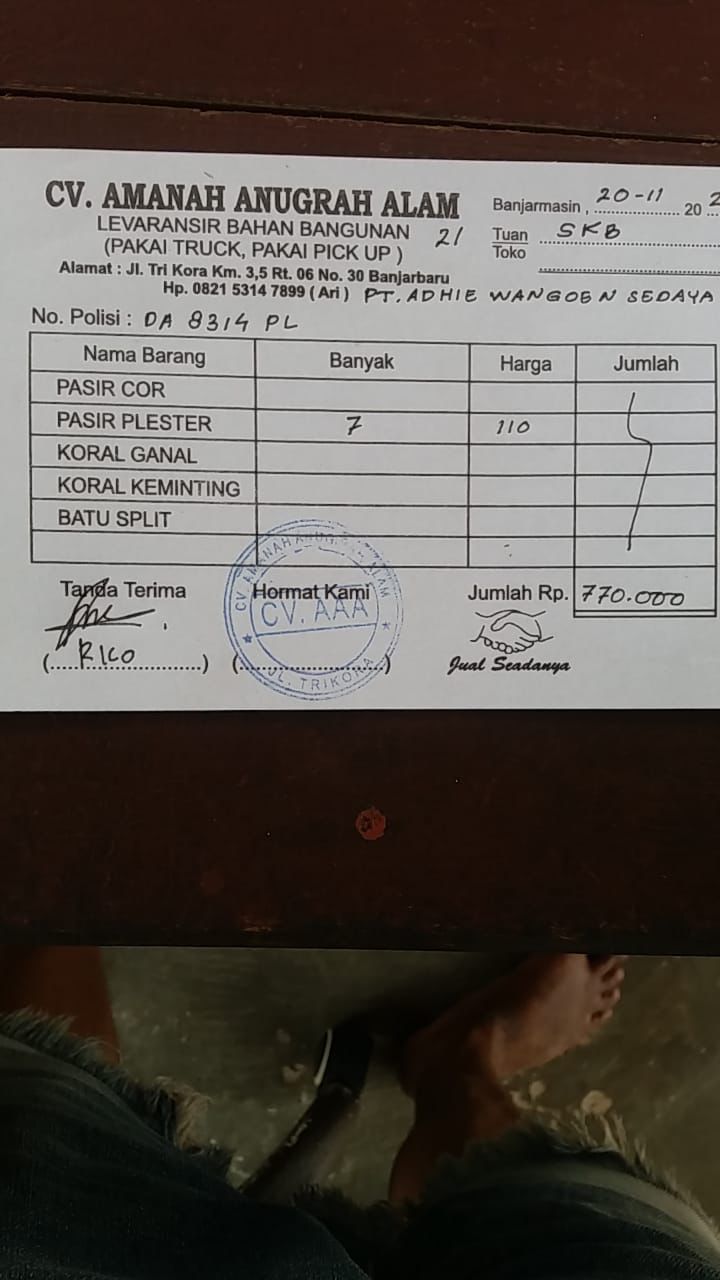 CV. AMANAH ANUGRAH ALAM
LEVARANSIR BAHAN BANGUNAN
(PAKAI TRUCK, PAKAI PICK UP )
21
Alamat : Jl. Tri Kora Km. 3,5 Rt. 06 No. 30 Banjarbaru
Hp. 0821 5314 7899 ( Ari )
Banjarmasin , 20-11 20 2
Tuan SKB
Toko
PT. ADHIE WANGOEN SEDAYA
No. Polisi : DA 8314 PL
Nama Barang Banyak Harga Jumlah
PASIR COR
PASIR PLESTER 7 110
KORAL GANAL
KORAL KEMINTING
BATU SPLIT
Tanda Terima Hormat Kami Jumlah Rp. 770.000
(RICO) ( )
CV. AMANAH ANUGRAH ALAM
CV. AAA
JL. TRIKORA
Jual Seadanya